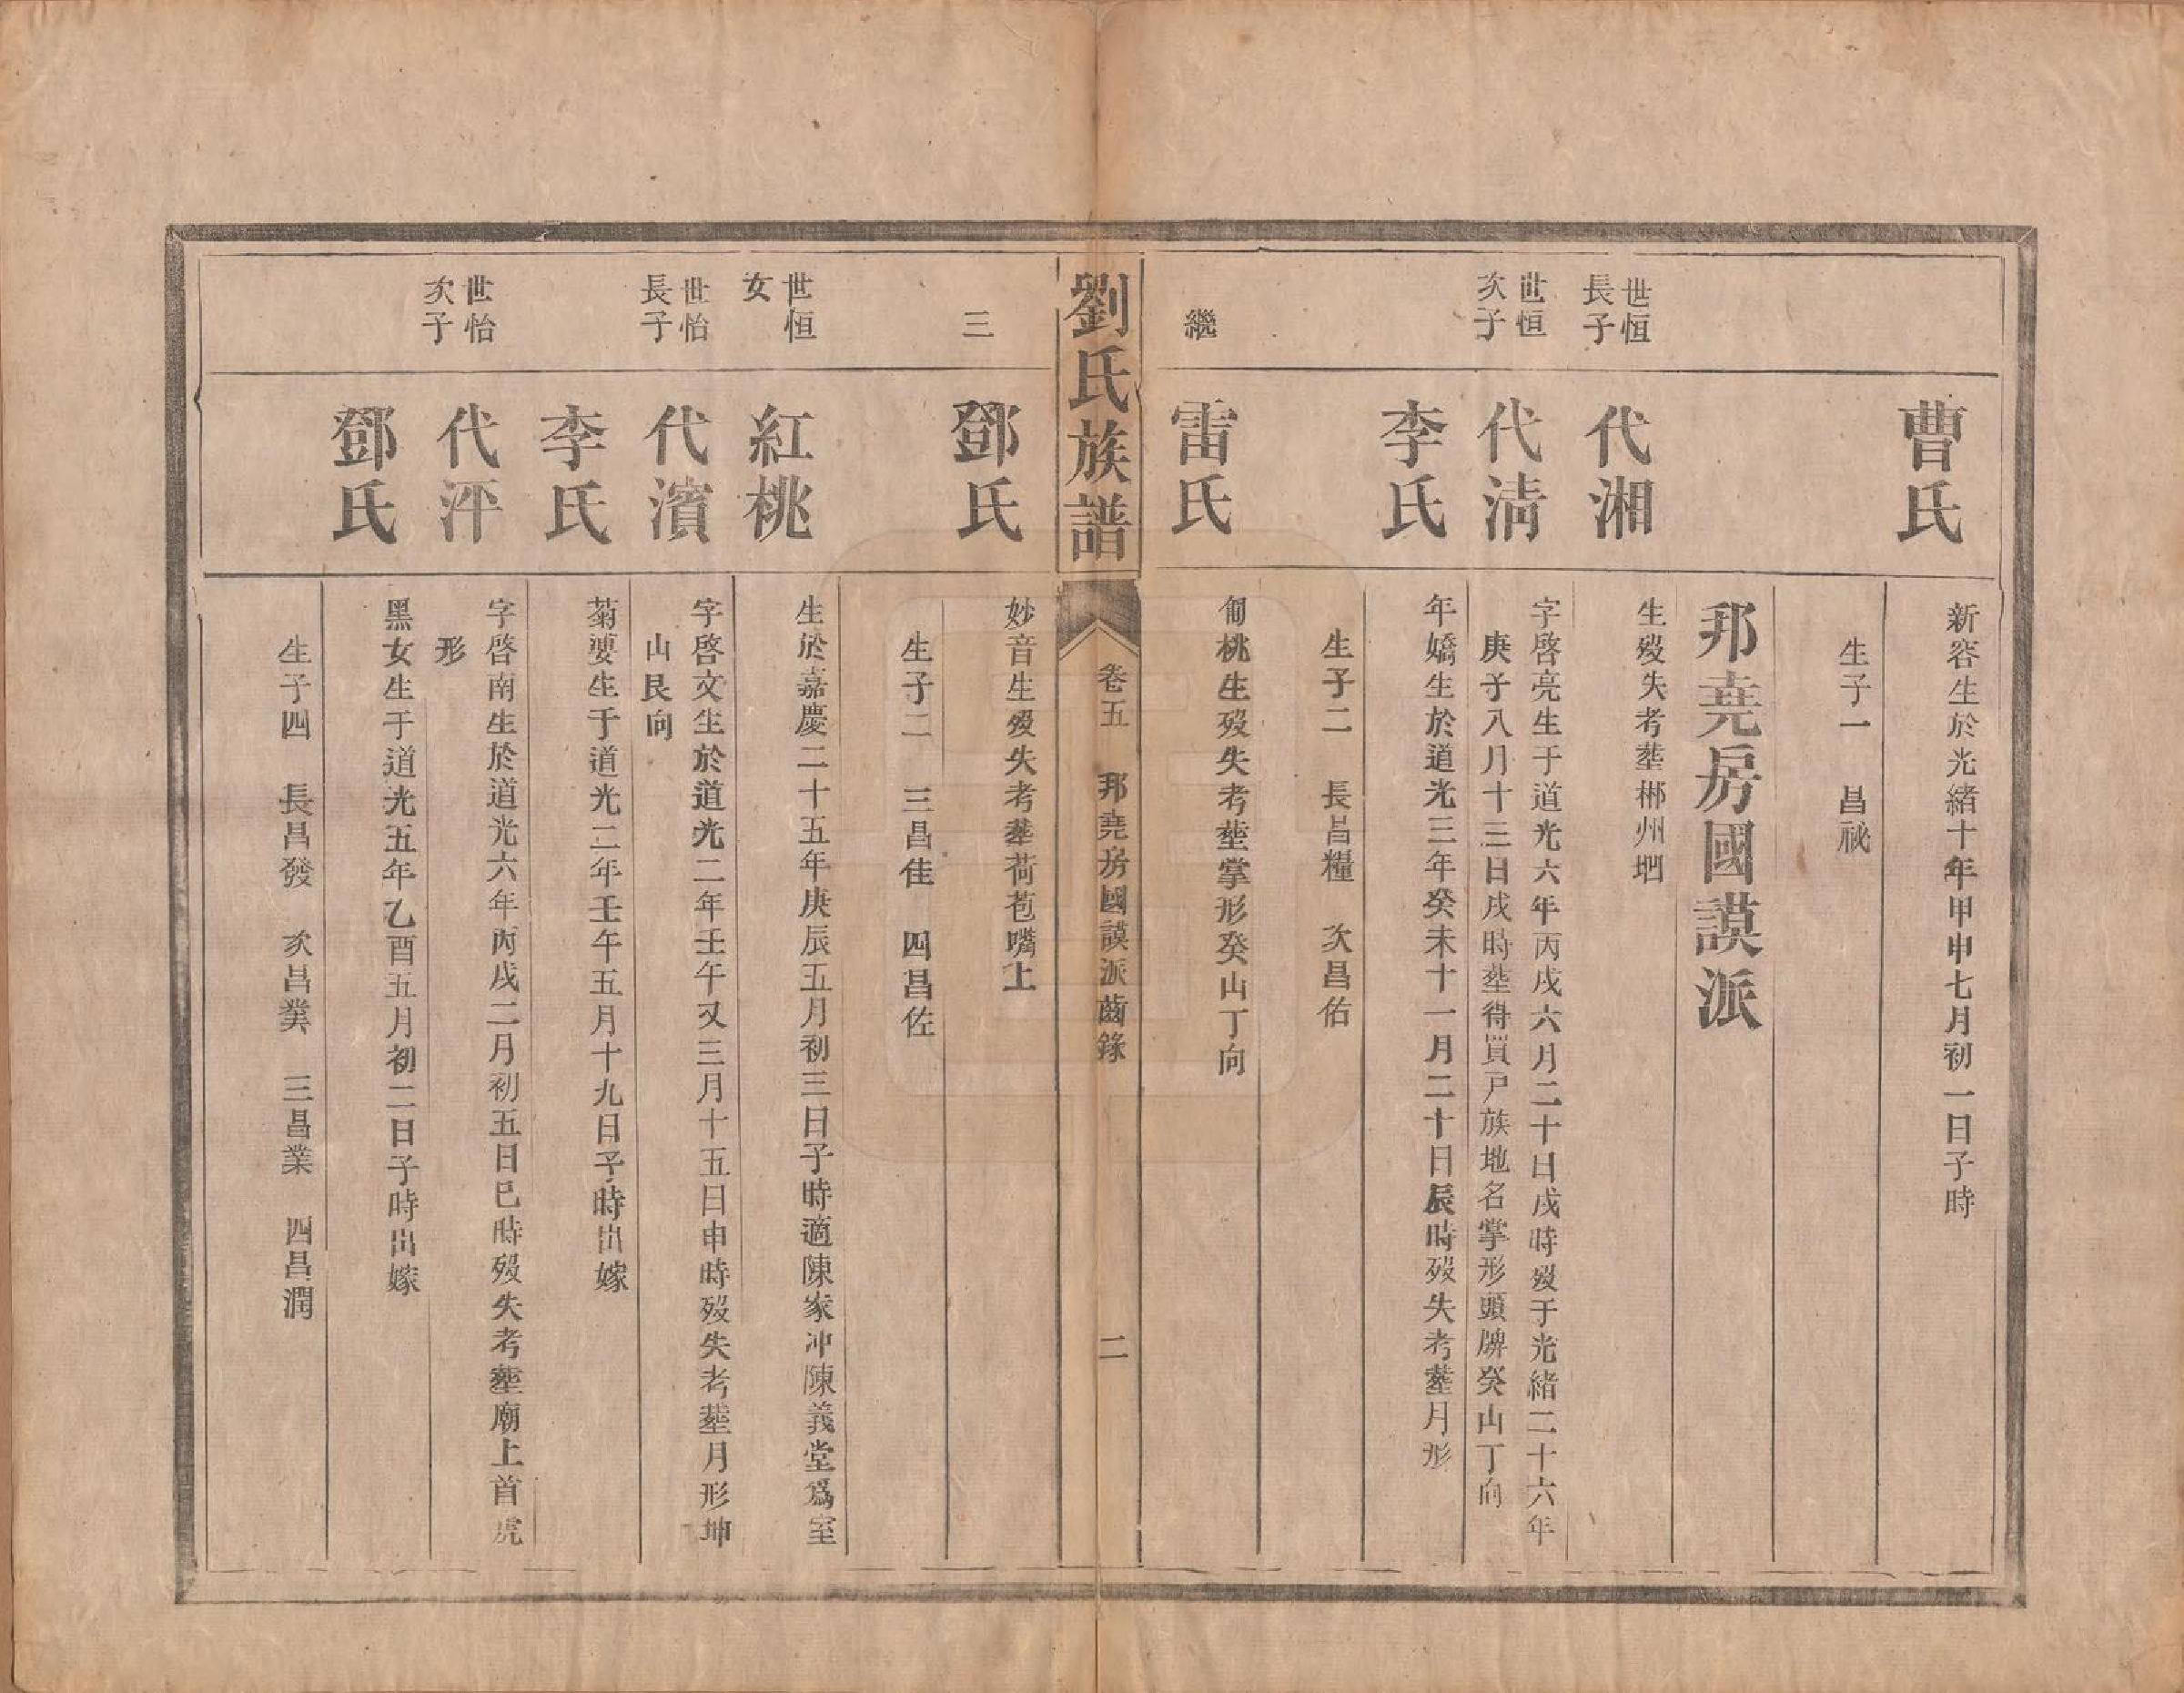 曹氏
新容生於光緒十年甲申七月初一日子時
生子一　昌祕
邦堯房國謨派
世恒
長子
代湘
生歿失考塟郴州垇
世恒
次子
代淸
字啓亮生于道光六年丙戌六月二十日戌時歿于光緒二十六年
庚子八月十三日戌時塟得買尸族地名掌形頭牌癸山丁向
李氏
年嬌生於道光三年癸未十一月二十日辰時歿失考塟月形
生子二　長昌糧　次昌佑
繼
雷氏
桃生歿失考塟掌形癸山丁向
劉氏族譜
卷五　邦堯房國謨派齒錄
二
三
鄧氏
妙音生歿失考塟荷苞嘴上
生子二　三昌佳　四昌佐
世恒
女
紅桃
生於嘉慶二十五年庚辰五月初三日子時適陳家冲陳義堂爲室
世怡
長子
代濱
字啓文生於道光二年壬午又三月十五日申時歿失考塟月形坤
山艮向
李氏
菊嬰生于道光二年壬午五月十九日子時出嫁
世怡
次子
代泙
字啓南生於道光六年丙戌二月初五日巳時歿失考塟廟上首虎
形
鄧氏
黑女生于道光五年乙酉五月初二日子時出嫁
生子四　長昌發　次昌業　三昌業　四昌潤